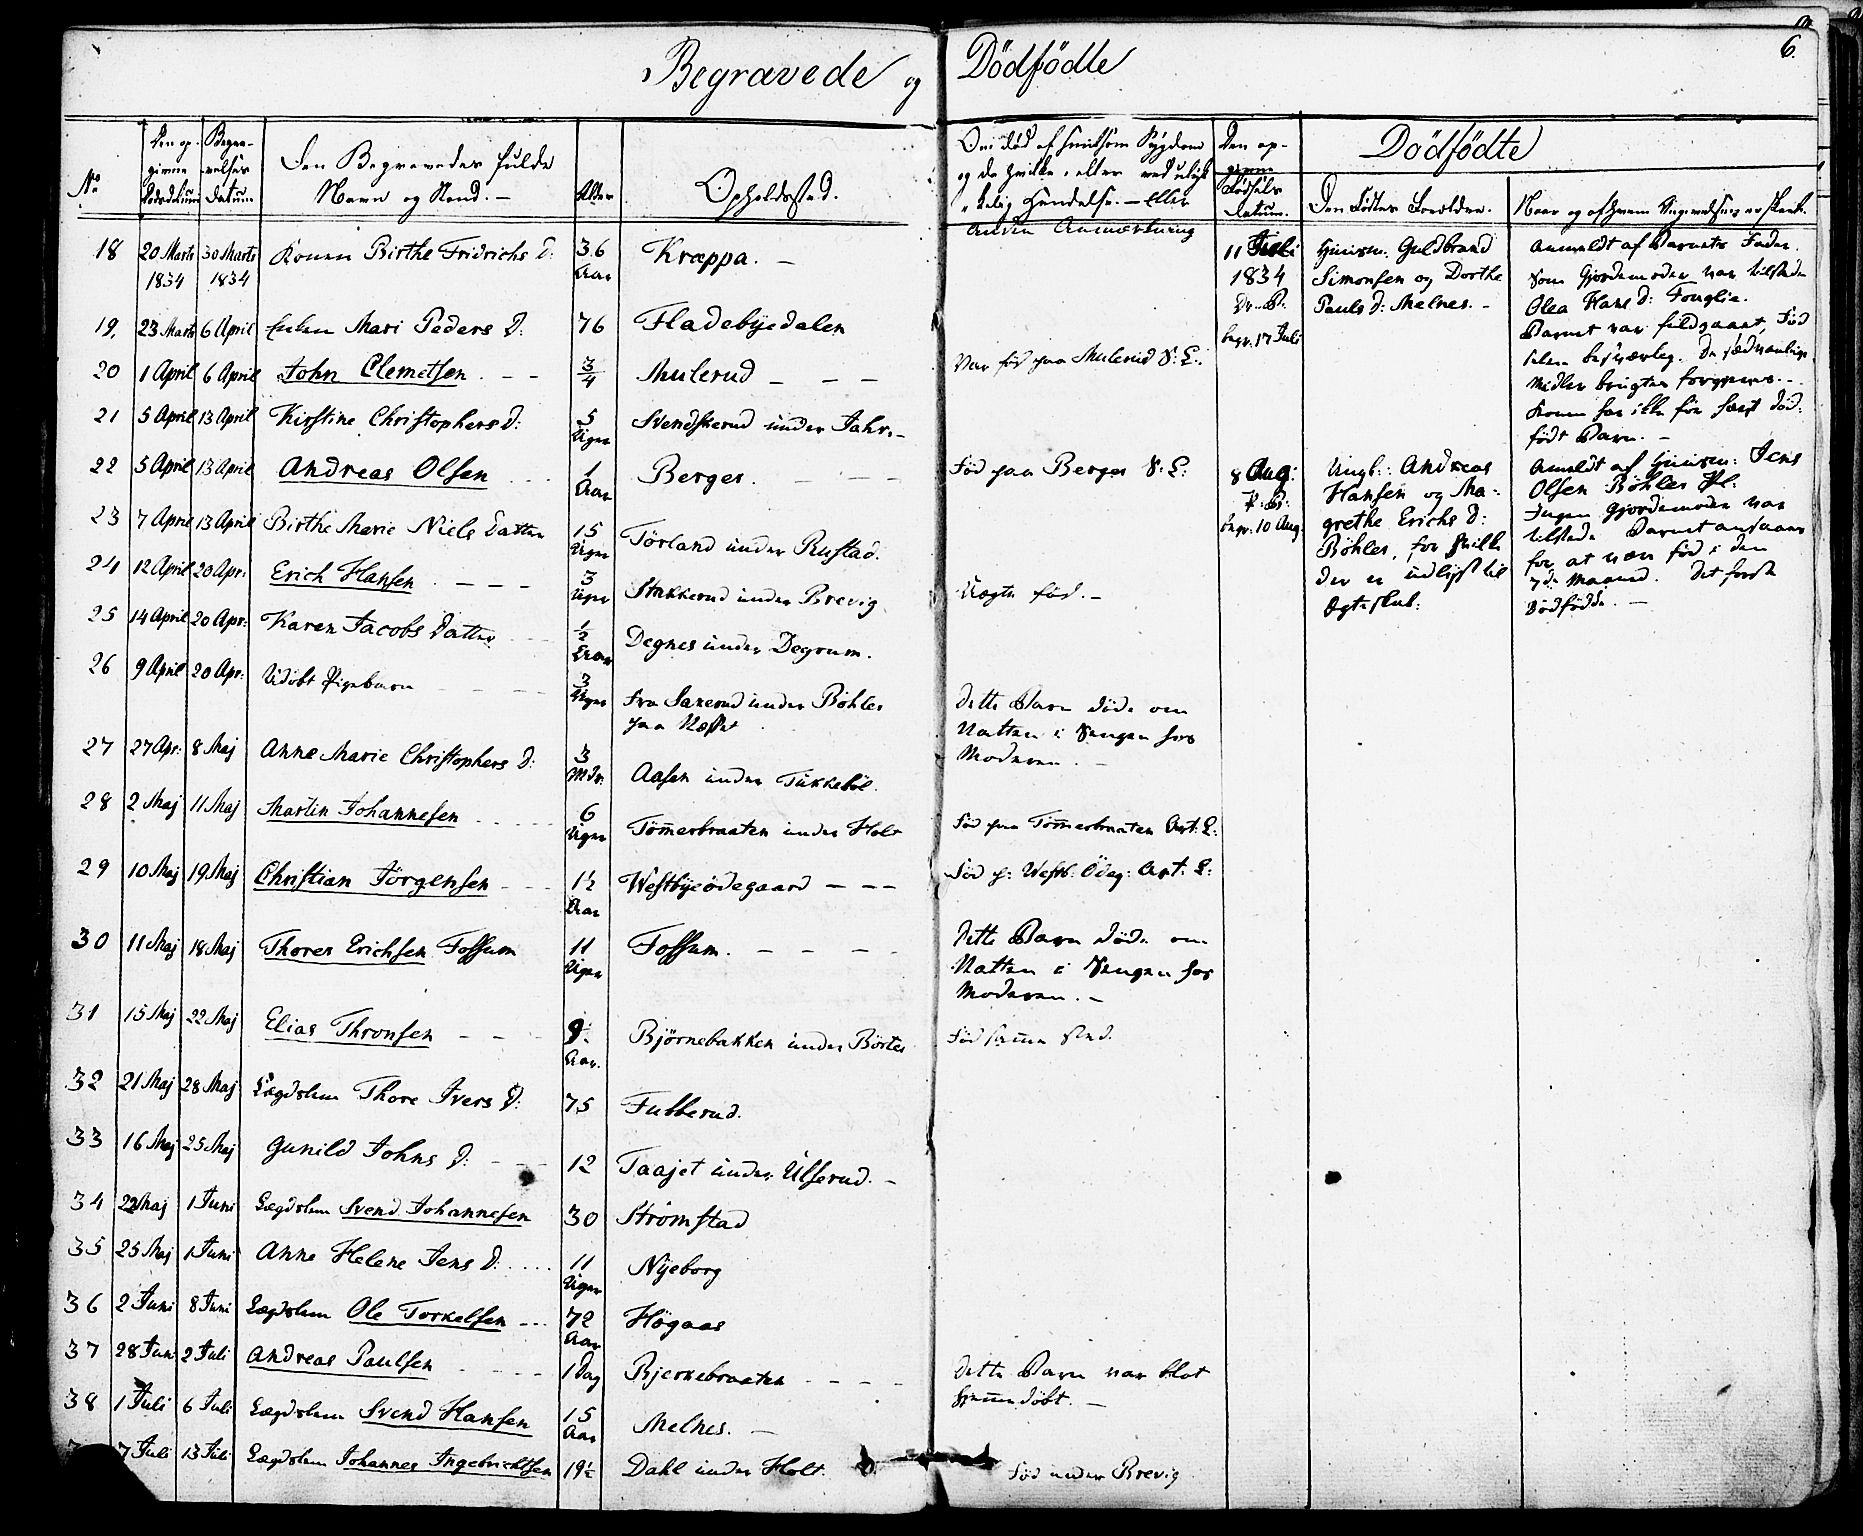 Begravede og Dödfödte
6.
No
Den op-
givne
Dödsdatum
Begra-
velses
Datum
Den Begravedes fulde
Navn og Stand. -
Alder
Opholdssted.
Om död af smitsom Sygdom
og da hvilken, eller ved ulyk-
kelig Hændelse. - Eller
anden Anmærkning
Den op-
givne
Födsels
Datum.
Dödfödte
Den Födtes Forældre.
Naar og af hvem Angivelsen er skeet.
18 20 Marts 1834 30 Marts 1834 Konen Birthe Fridrichs D: 36 Aar Kræppa. -
19. 23 Marts 6 April Enken Mari Peders D: 76 Fladebyedalen
20 1 April 6 April John Clemetsen. - - 3/4 Mulerud - - - Var föd paa Mulerud S: E:
21 5 April 13 April Kirstine Christophers D: 5 Uger Svendskerud under Jahr. -
22 5 April 13 April Andreas Olsen 1 Aar Berger. - - - Föd paa Berger S: E:
23 7 April 13 April Birthe Marie Niels Datter 15 Uger Törland under Rustad.
24 12 April 20 Apr: Erich Hansen. - - - 3 Uger Stakkerud under Brevig Uægte föd. -
25 14 April 20 Apr: Karen Jacobs Datter 1/2 Aar Degnes under Degrum.
26 9 April 20 Apr: Udöbt Pigebarn - - - 3 Uger Fra Saxerud under Böhler
paa Næsset
Dette Barn döde om
Natten i Sengen hos
Moderen. -
27 27 Apr: 8 Maj Anne Marie Christophers D: 3 Mdr. Aasen under Tukkeböl.
28 2 Maj 11 Maj Martin Johannesen 6 Uger Tömerbraaten under Holt Föd paa Tömerbraaten Art: E:
29 10 Maj 19 Maj Christian Jörgensen - - 1½ Aar Westbyeödegaard - - - Föd p: Westb: Ödeg: Art: E:
30 11 Maj 18 Maj Thorer Erichsen Fossum 11 Uger Fossum. - - - Dette Barn döde om
Natten i Sengen hos
Moderen. -
31 15 Maj 22 Maj Elias Thronsen - - - Aar. Björnebakken under Börter Föd samme Sted.
32 21 Maj 28 Maj Lægdslem Thore Ivers D: 75 Fubberud.
33 16 Maj 25 Maj Gunild Johns D: - - - 12 Taajet under Ulserud. -
34 22 Maj 1 Juni Lægdslem Svend Johannesen 30 Strömstad
35 25 Maj 1 Juni Anne Helene Jens D: 11 Uger Nyeborg
36 2 Juni 8 Juni Lægdslem Ole Torkelsen - - 72 Aar Högaas
37 28 Juni 2 Juli Andreas Paulsen 1 Dag Bjerkebraaten - - - - Dette Barn var blot
hjemmedöbt. -
38 1 Juli 6 Juli Lægdslem Svend Hansen 15 Aar Melnes. -
7 Juli 13 Juli Lægdslem Johannes Ingebrichtsen 19½ Dahl under Holt Föd under Brevig
11 Juli
1834
Dr. B:
begr. 17 Juli
Huusm: Guldbrand
Simonsen og Dorthe
Pauls D: Melnes. -
Anmeldt af Barnets Fader.
Som Gjordemoder var tilstede
Olea Hans D: Fouglie.
Barnet var fuldgaaet, Föd
selen besværlig. De sædvanlige
Midler brugtes forgjeves. -
Konen har ikke för havt död-
födt Barn. -
8 Aug:
P: B:
begr. 10 Aug:
Ungk: Andreas
Hansen og Ma-
grethe Erichs D:
Böhler, for hvilke
der er udlyst til
Ægteskab:
Anmeldt af Huusm: Jens
Olsen Böhler Pl:
Ingen Gjordemoder var
tilstede. Barnet ansaaes
for at være föd i den
7de Maaned. Det förste
Dödfödde. -